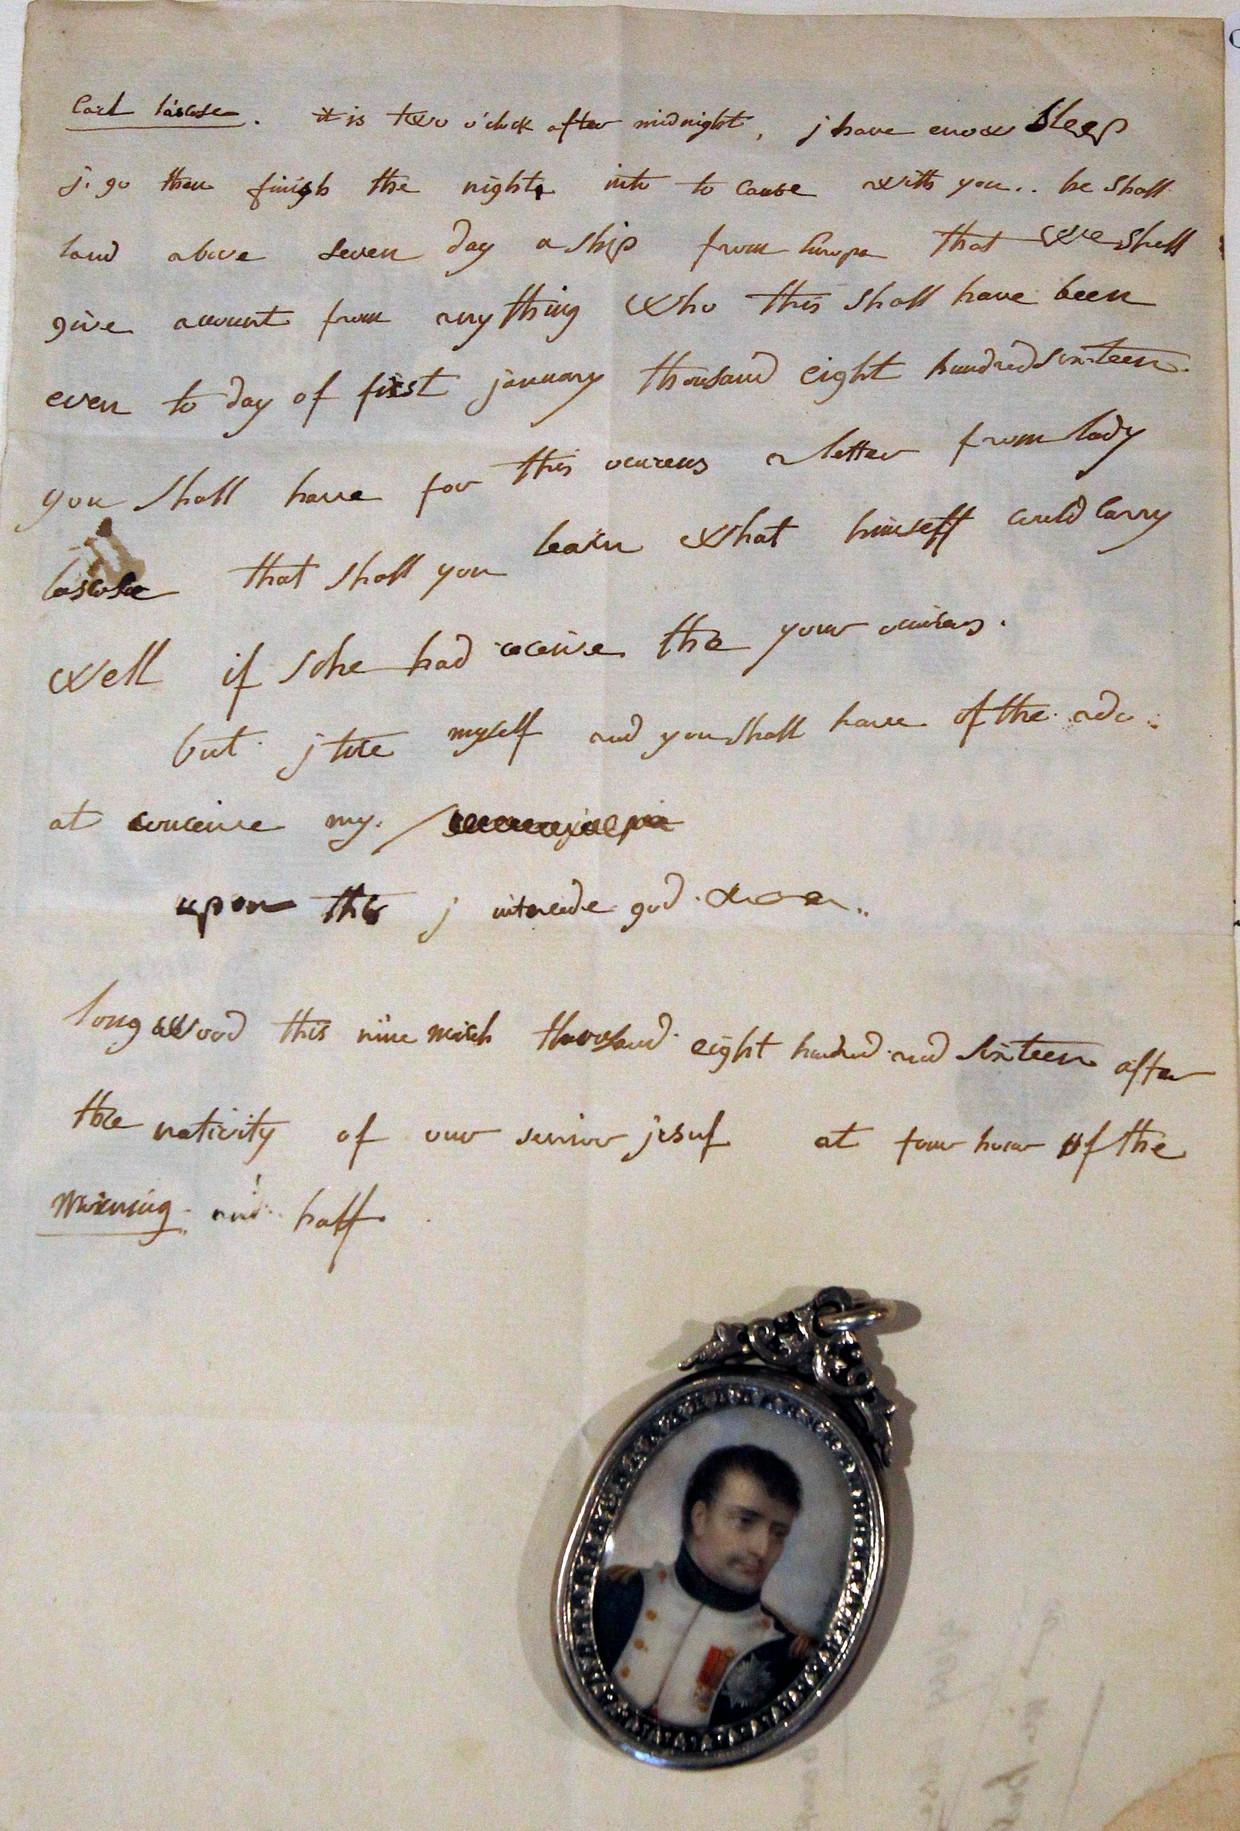 Earl lascase. it is two o'clock after midnight, j have enow sleep
j. go then finish the night into to cause with you.. he shall
land above seven day a ship from Europa that we shall
give account from any thing who this shall have been
even to day of first january thousand eight hundred sixteen.
you shall have for this ocurens a letter from lady
lascase that shall you learn what himself could carry
well if sche had receive the your
but j tire myself and you shall have of the ado.
at conceive my.
upon this j intercede god.
longwood this nine thousand eight hundred and sixteen after
the nativity of our senior jesus at four hour of the
morning. and half.